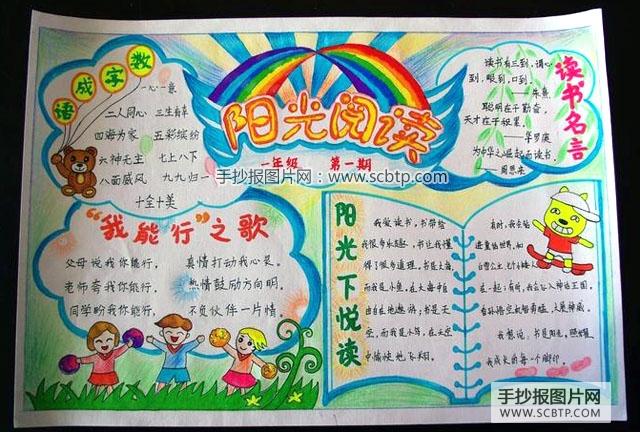 数字成语
一心一意
二人同心 三生有幸
四海为家 五彩缤纷
六神无主 七上八下
八面威风 九九归一
十全十美
阳光阅读
一年级 第一期
手抄报图片网：www.scbtp.com
读书名言
读书有三到，谓心
到，眼到，口到。
——朱熹
聪明在于勤奋，
天才在于积累。
——华罗庚
为中华之崛起而读书。
——周恩来
“我能行”之歌
父母说我你能行， 真情打动我心灵。
老师夸我你能行， 热情鼓励方向明。
同学盼我你能行， 不负伙伴一片情。
阳光下悦读
我爱读书，书带给
我很多乐趣，书让我懂
得了很多道理。书是大海，
而我是小鱼，在大海中自
由自在地遨游；书是天
空，而我是小鸟，在天空
中愉快地飞翔。
有时，我会钻
进童话世界，和
白雪公主、七个小矮人
在一起；有时，我会 入神话王国，
看孙悟空机智勇敢，大展神威。
我想说：书是阳光，照耀着
我成长的每一个脚印。
手抄报图片网
WWW.SCBTP.COM